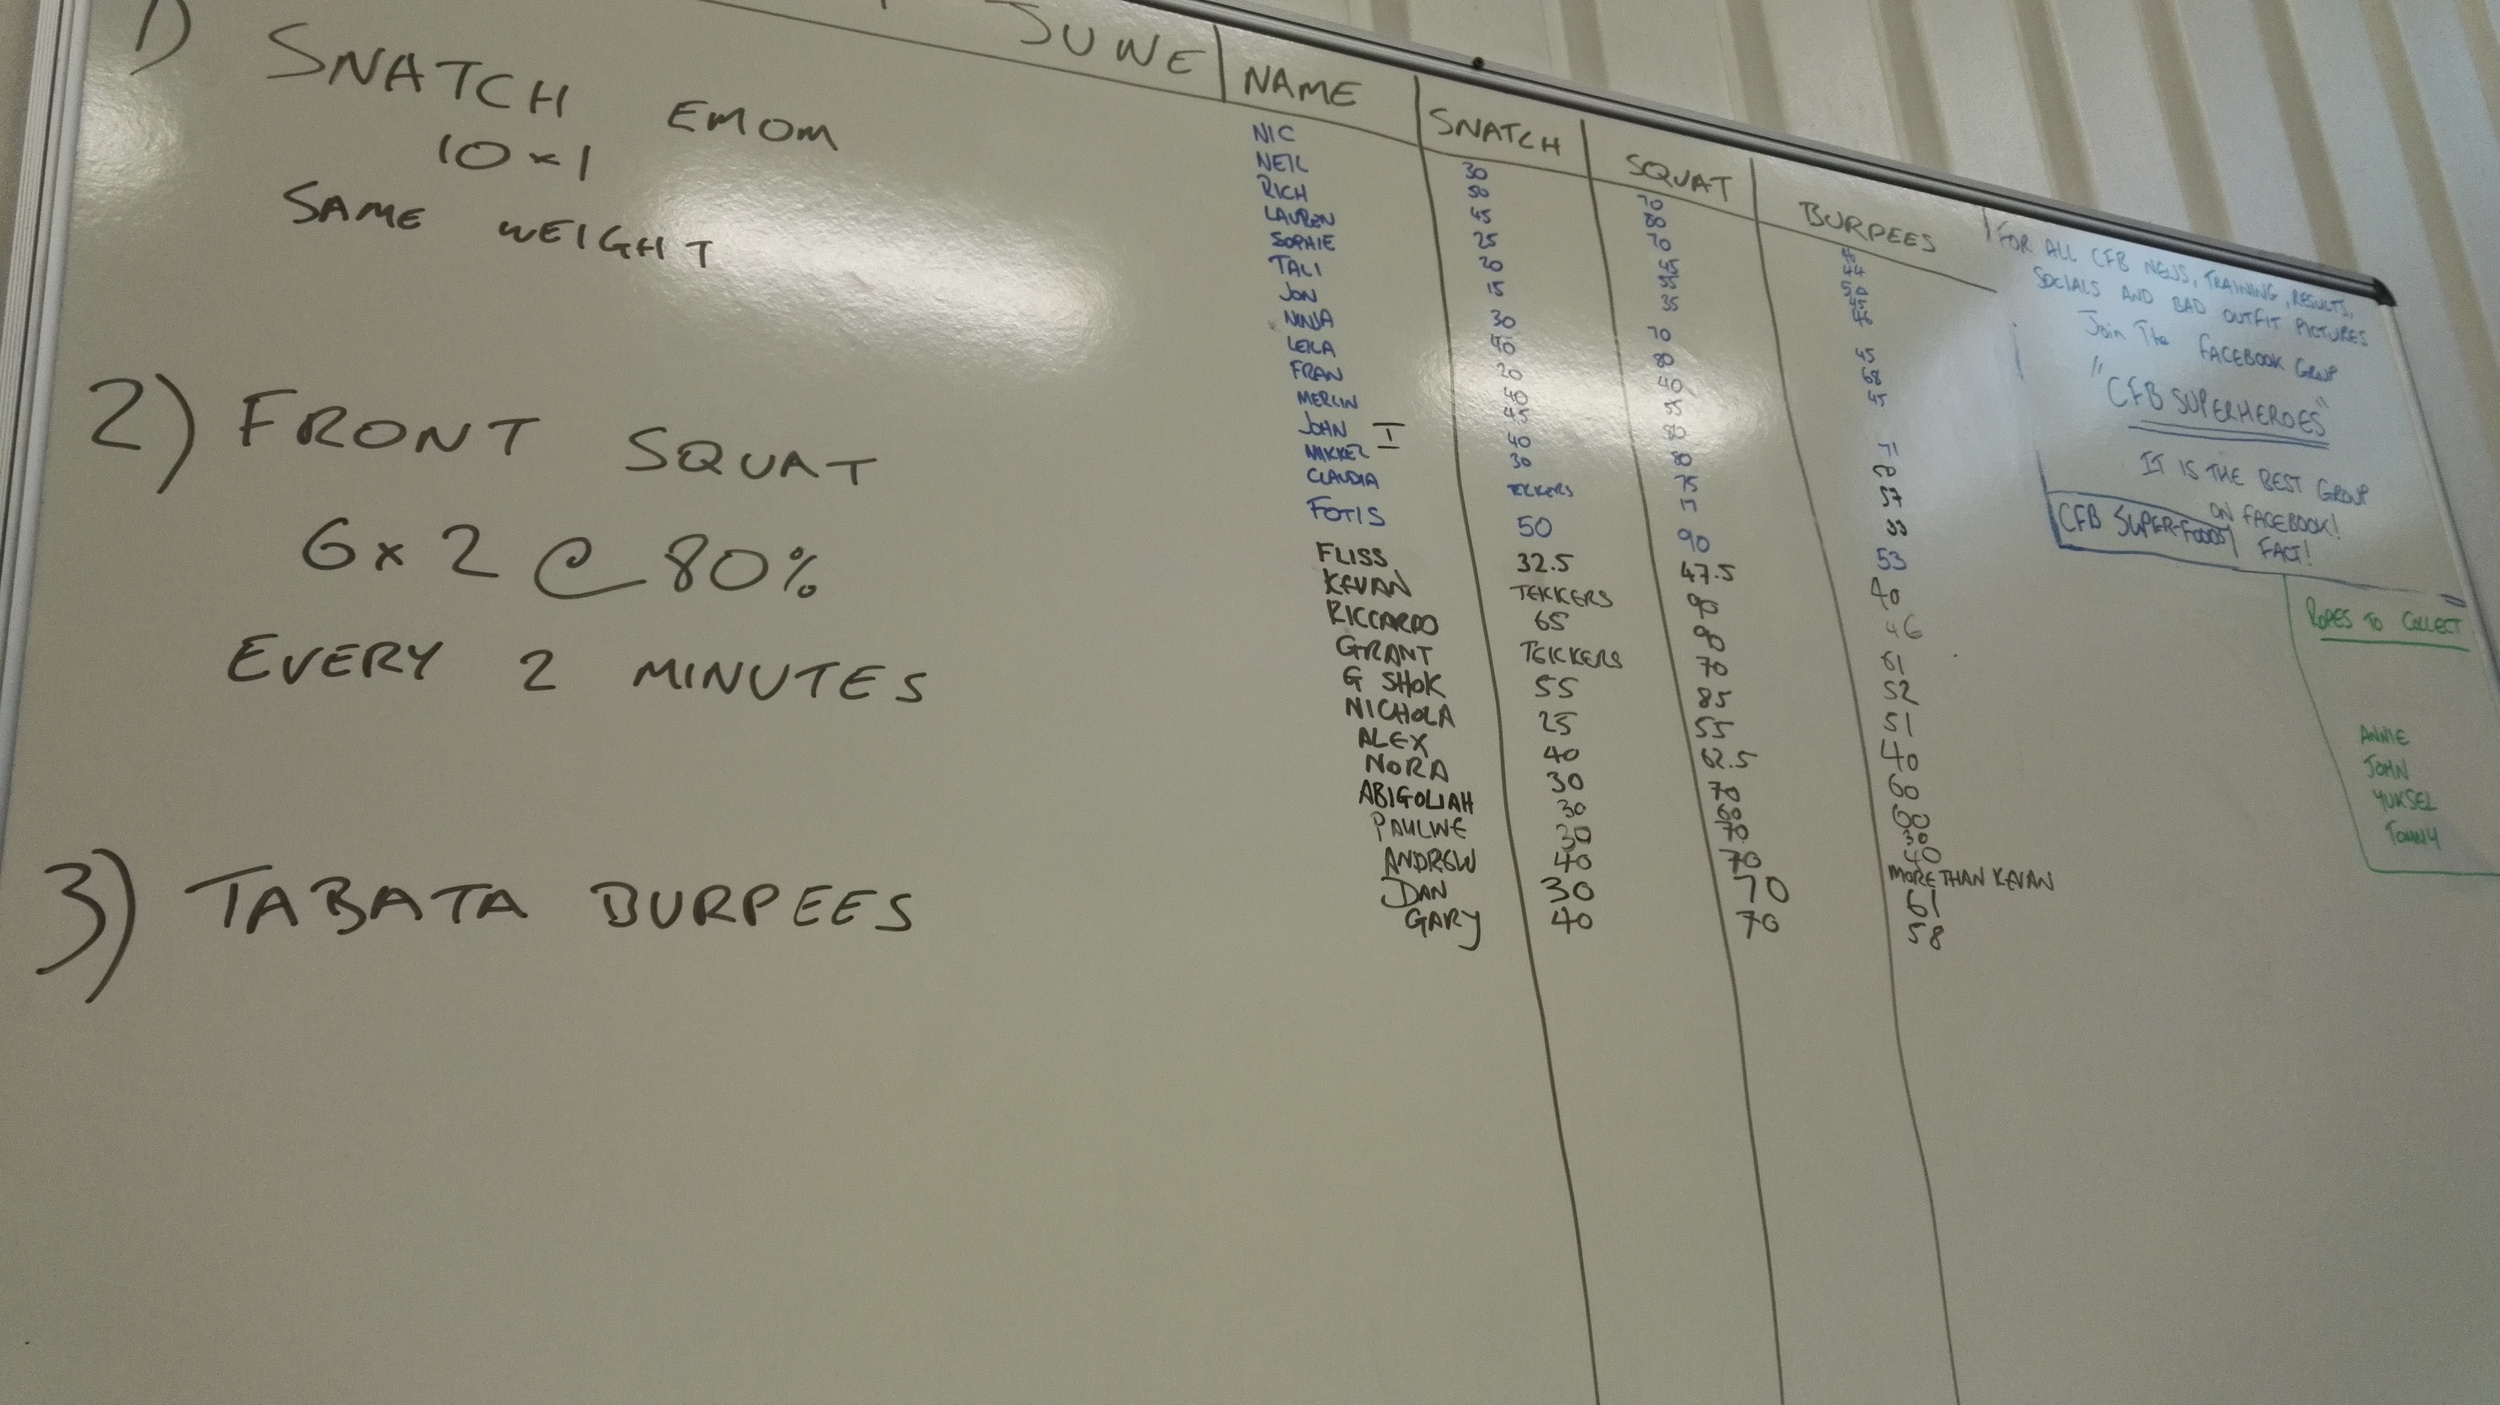 1) SNATCH EMOM
10 x 1
SAME WEIGHT
2) FRONT SQUAT
6 x 2 @ 80%
EVERY 2 MINUTES
3) TABATA BURPEES
JUNE
NAME SNATCH SQUAT BURPEES
NIC 30 70
NEIL 50 80 44
RICH 45 70 50
LAUREN 25 45 45
SOPHIE 20 35 46
TALI 15 35
JON 30 70 45
NINJA 40 80 68
LEILA 20 40 45
FRAN 40 55
MERLIN 45 80 71
JOHN I 40 80
MIKKEL 30 75 57
CLAUDIA TEKKERS
FOTIS 50 90 53
FLISS 32.5 47.5 40
KEVAN TEKKERS 90 46
RICCARDO 65 90 61
GRANT TEKKERS 70 52
G SHOK 55 85 51
NICHOLA 25 55 40
ALEX 40 62.5 60
NORA 30 70 60
ABIGOLIAH 30 60 30
PAULINE 30 70 40
ANDREW 40 70 MORE THAN KEVAN
DAN 30 70 61
GARY 40 70 58
FOR ALL CFB NEWS, TRAINING, RESULTS,
SOCIALS AND BAD OUTFIT PICTURES
Join The FACEBOOK GROUP
"CFB SUPERHEROES"
IT IS THE BEST GROUP
ON FACEBOOK!
FACT!
CFB SUPER-FOODS
ROPES TO COLLECT
ANNIE
JOHN
YUKSEL
TOMMY